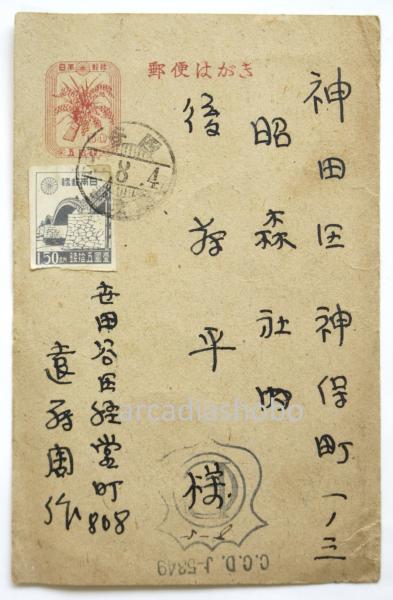 郵便はがき
日本郵便
五拾銭
神田区神保町一ノ三
昭森社内
後藤平様
日本郵便
壹圓五拾銭
1.50
8 4
世田谷区経堂町808
遠藤周作
C.C.D. J-5349
arcadiashobo